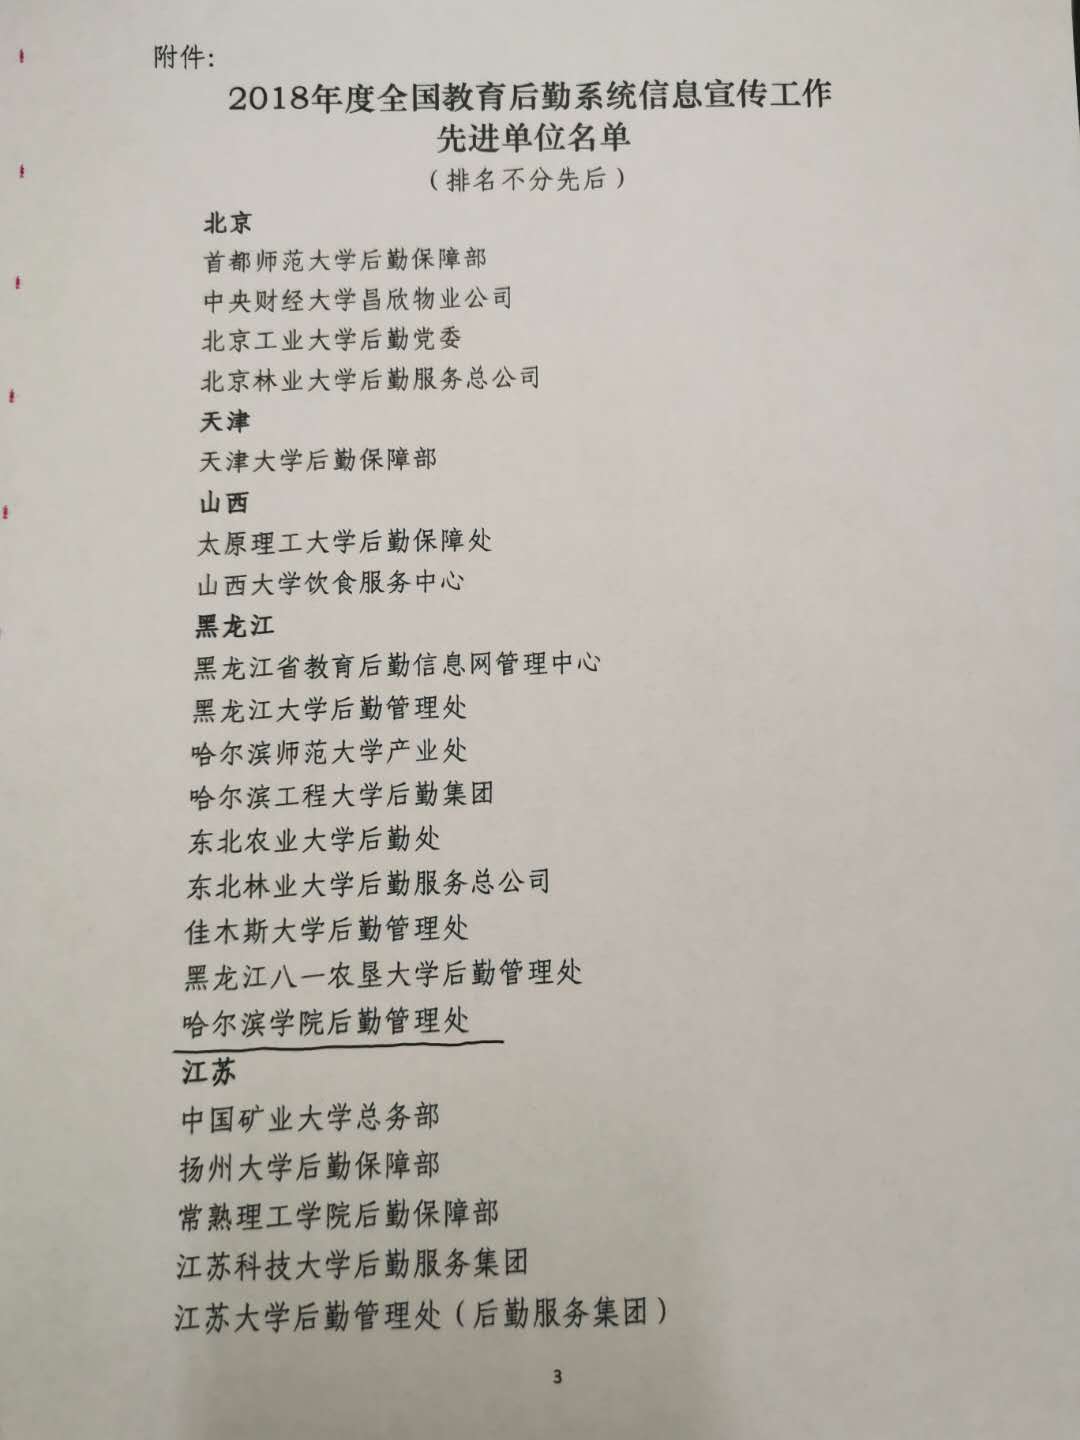 附件:
2018年度全国教育后勤系统信息宣传工作
先进单位名单
（排名不分先后）
北京
首都师范大学后勤保障部
中央财经大学昌欣物业公司
北京工业大学后勤党委
北京林业大学后勤服务总公司
天津
天津大学后勤保障部
山西
太原理工大学后勤保障处
山西大学饮食服务中心
黑龙江
黑龙江省教育后勤信息网管理中心
黑龙江大学后勤管理处
哈尔滨师范大学产业处
哈尔滨工程大学后勤集团
东北农业大学后勤处
东北林业大学后勤服务总公司
佳木斯大学后勤管理处
黑龙江八一农垦大学后勤管理处
哈尔滨学院后勤管理处
江苏
中国矿业大学总务部
扬州大学后勤保障部
常熟理工学院后勤保障部
江苏科技大学后勤服务集团
江苏大学后勤管理处（后勤服务集团）
3